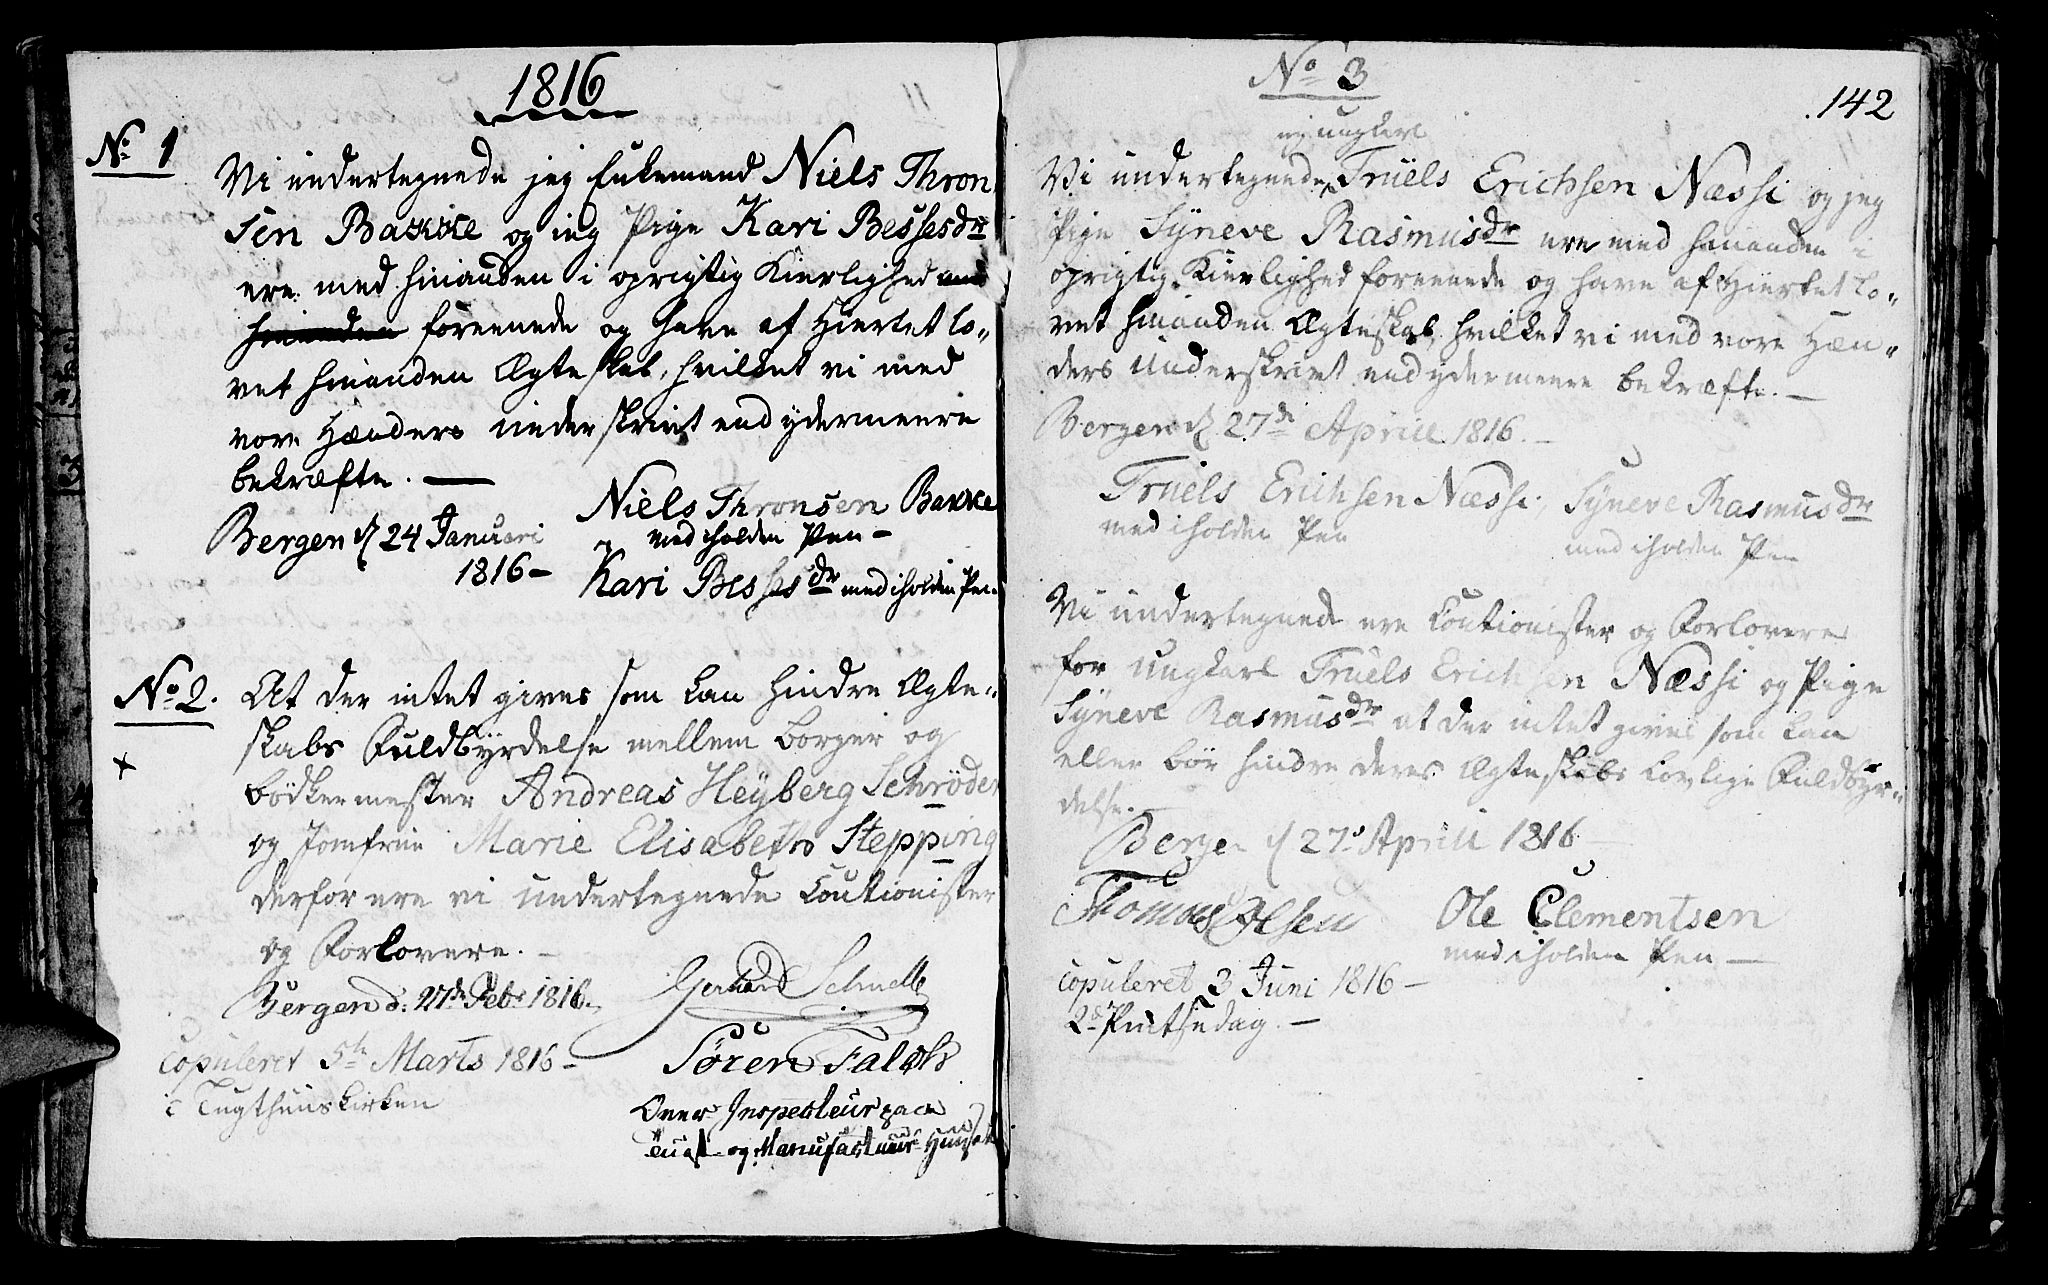 1816
No 1
Vi undertegnede jeg Enkemand Niels Thron
sen Bakke og jeg Pige Kari Bessesdr
ere med hinanden i oprigtig Kierlighed med
hinanden foreenede og have af Hiertet lo-
vet hinanden Ægteskab, hvilket vi med
vore Hænders underskrivt end ydermeere
bekræfte. —
Bergen d 24 Januari
1816 —
Niels Thronsen Bakke
med iholden Pen —
Kari Bessesdr med iholden Pen
No 2.
At der intet gives som kan hindre Ægte-
skabs Fuldbyrdelse mellem Borger og
Bödkermester Andreas Heyberg Schröder
og Jomfrue Marie Elisabeth Stepping
derfor ere vi undertegnede Coutionister
og Forlovere. —
Bergen d: 27de Febr 1816.
Sören Falch
Over Inspecteur paa
Tugt og Manufactuur Huuset
Copuleret 5te Marts 1816 —
i Tugthuuskirken
142
No 3
jeg ungkarl
Vi undertegnede Truels Erichsen Næssi og jeg
Pige Syneve Rasmusdr ere med hinanden i
oprigtig Kierlighed foreenede og have af Hiertet lo-
vet hinanden Ægteskab, hvilket vi med vore Hæn-
ders Underskrivt end ydermeere bekræfte. —
Bergen d 27de Aprill 1816. —
Truels Erichsen Næssi,
med iholden Pen
Syneve Rasmusdr
med iholden Pen
Vi undertegnede ere Coutionister og Forlovere
for ungkarl Truels Erichsen Næssi og Pige
Syneve Rasmusdr at der intet gives som kan
eller bör hindre deres Ægteskabs lovlige Fuldbyr-
delse. —
Bergen d 27de Aprill 1816
Thomas Olsen
Ole Clementsen
med iholden Pen —
copuleret 3 Juni 1816 —
2d Pintsedag. —